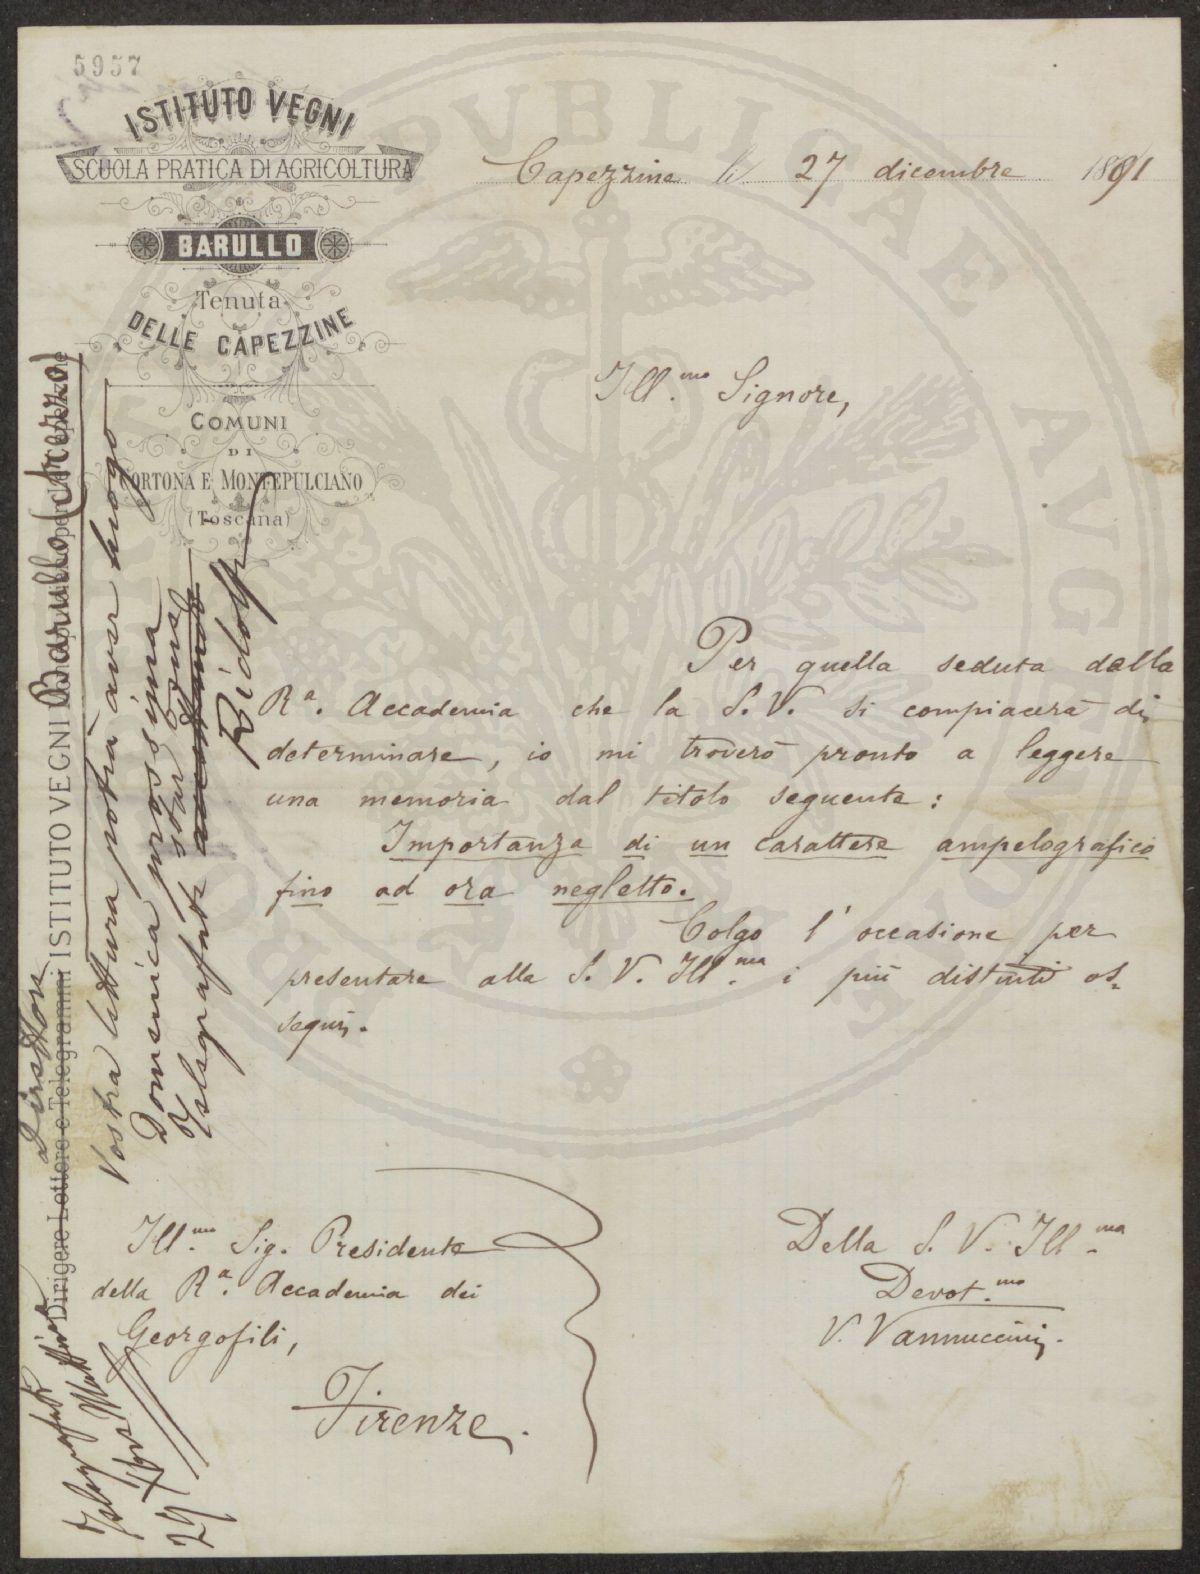 5957
ISTITUTO VEGNI
SCUOLA PRATICA DI AGRICOLTURA
BARULLO
Tenuta
DELLE CAPEZZINE
COMUNI
DI
CORTONA E MONTEPULCIANO
(Toscana)
Capezzine li 27 dicembre 1891
Ill.mo Signore,
Per quella seduta della
R.a Accademia che la S. V. si compiacerà di
determinare, io mi troverò pronto a leggere
una memoria dal titolo seguente:
Importanza di un carattere ampelografico
fino ad ora negletto.
Colgo l'occasione per
presentare alla S. V. Ill.ma i più distinti os-
sequi.
Della S. V. Ill.ma
Devot.mo
V. Vannuccini.
Ill.mo Sig. Presidente
della R.a Accademia dei
Georgofili,
Firenze.
Dirigere Lettere e Telegrammi ISTITUTO VEGNI
Direttore
Barullo (Arezzo)
Vostra lettura potrà aver luogo
Domenica prossima
Telegrafate
Ridolfi
Telegrafato
29 Xbre